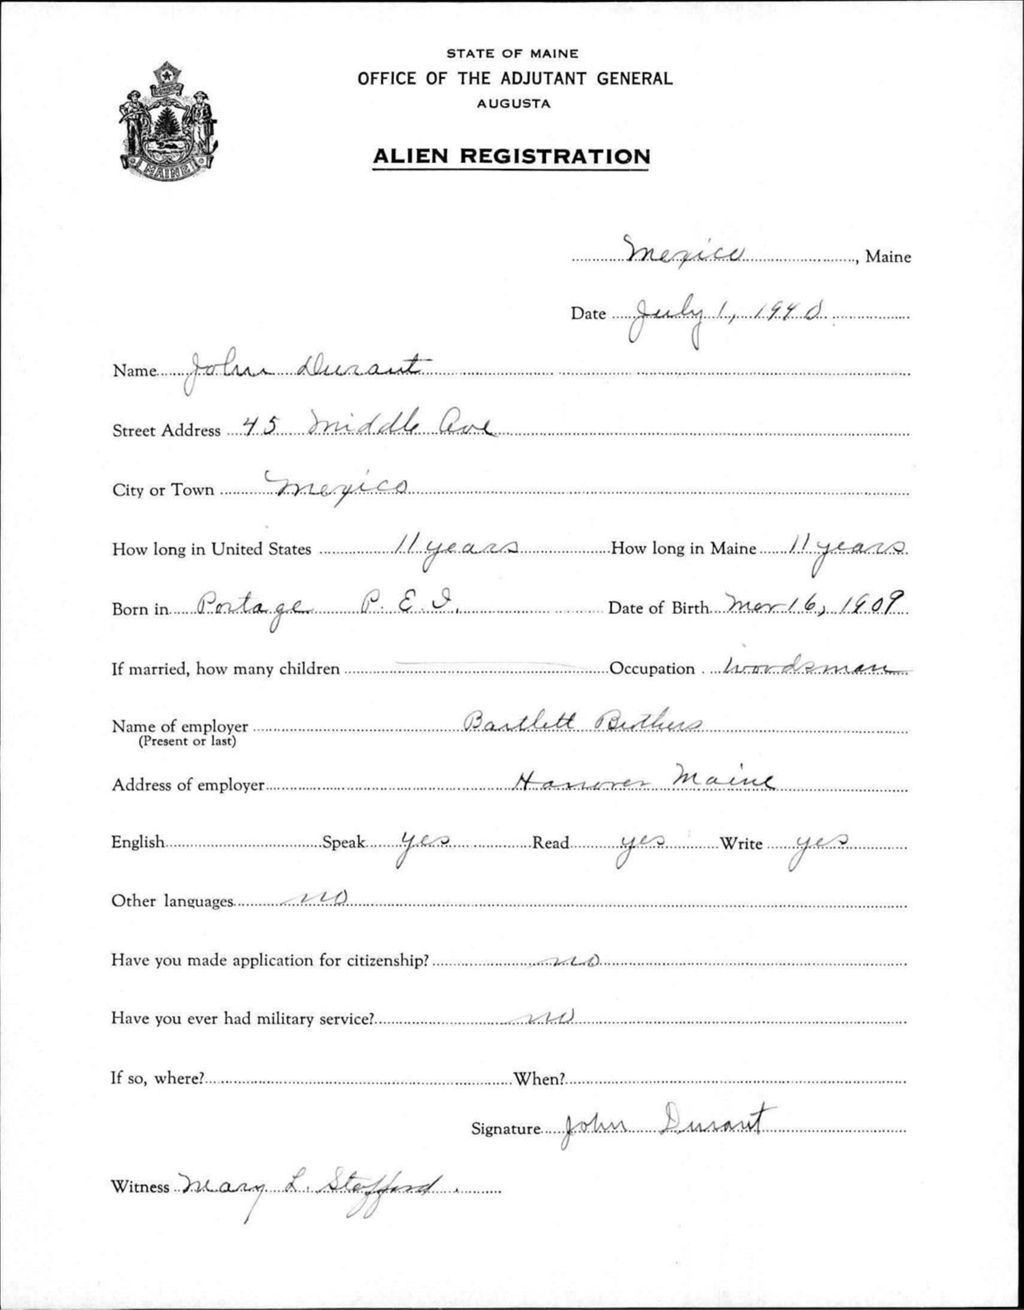 STATE OF MAINE
OFFICE OF THE ADJUTANT GENERAL
AUGUSTA
ALIEN REGISTRATION
MAINE
Mexico, Maine
Date July 1, 1940
Name John Durant
Street Address 45 Middle Ave
City or Town Mexico
How long in United States 11 years How long in Maine 11 years
Born in Portage P. E. I. Date of Birth Mar 16, 1909
If married, how many children Occupation Woodsman
Name of employer Bartlett Brothers
(Present or last)
Address of employer Hanover Maine
English Speak yes Read yes Write yes
Other languages no
Have you made application for citizenship? no
Have you ever had military service? no
If so, where? When?
Signature John Durant
Witness Mary L. Stafford.